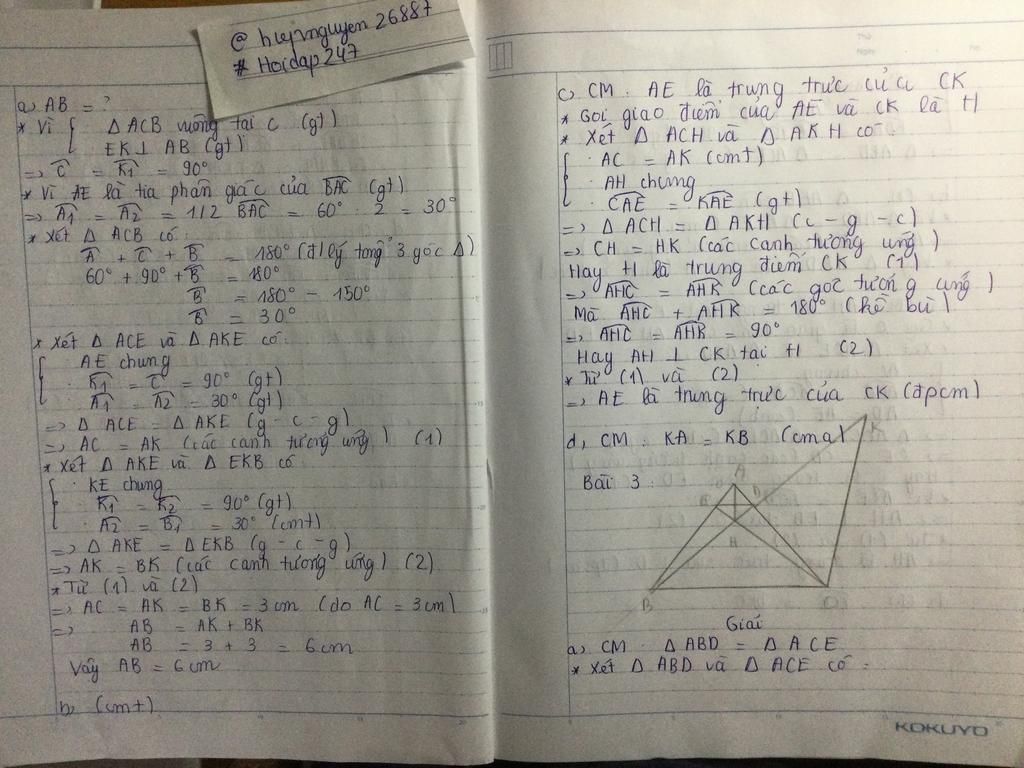 @ hiepnguyen 26887
# Hoidap 247
a, AB = ?
* Vì { Δ ACB vuông tại C (gt)
EK ⊥ AB (gt)
=> Ĉ = K̂1 = 90°
* Vì AE là tia phân giác của BAC (gt)
=> Â1 = Â2 = 1/2 BAC = 60° : 2 = 30°
* Xét Δ ACB có:
 + Ĉ + B̂ = 180° (đ/lý tổng 3 góc Δ)
60° + 90° + B̂ = 180°
B̂ = 180° - 150°
B̂ = 30°
* Xét Δ ACE và Δ AKE có:
AE chung
K̂1 = Ĉ = 90° (gt)
Â1 = Â2 = 30° (gt)
=> Δ ACE = Δ AKE (g - c - g)
=> AC = AK (các cạnh tương ứng) (1)
* Xét Δ AKE và Δ EKB có
KE chung
K̂1 = K̂2 = 90° (gt)
Â2 = B̂1 = 30° (cmt)
=> Δ AKE = Δ EKB (g - c - g)
=> AK = BK (các cạnh tương ứng) (2)
* Từ (1) và (2)
=> AC = AK = BK = 3 cm (do AC = 3 cm)
=> AB = AK + BK
AB = 3 + 3 = 6 cm
Vậy AB = 6 cm
b, (cmt)
c, CM : AE là trung trực của CK
* Gọi giao điểm của AE và CK là H
* Xét Δ ACH và Δ AKH có
AC = AK (cmt)
AH chung
CAE = KAE (gt)
=> Δ ACH = Δ AKH (c - g - c)
=> CH = HK (các cạnh tương ứng)
Hay H là trung điểm CK (1)
=> AHC = AHK (các góc tương ứng)
Mà AHC + AHK = 180° (kề bù)
=> AHC = AHK = 90°
Hay AH ⊥ CK tại H (2)
* Từ (1) và (2)
=> AE là trung trực của CK (đpcm)
d, CM : KA = KB (cma)
K
Bài 3 :
A
D
H
B
Giải
a, CM : Δ ABD = Δ ACE
* Xét Δ ABD và Δ ACE có :
KOKUYO